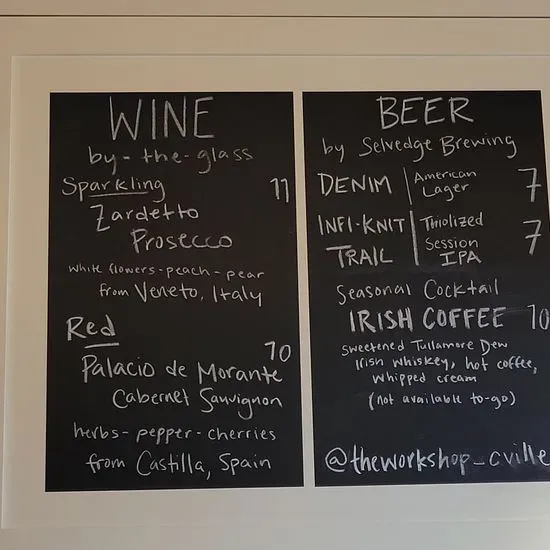 WINE
by-the-glass
Sparkling 11
Zardetto
Prosecco
white flowers-peach-pear
from Veneto, Italy
Red
10
Palacio de Morante
Cabernet Sauvignon
herbs-pepper-cherries
from Castilla, Spain
BEER
by Selvedge Brewing
DENIM American Lager 7
INFI-KNIT TRAIL Thiolized Session IPA 7
Seasonal Cocktail
IRISH COFFEE 10
sweetened Tullamore Dew
Irish whiskey, hot coffee,
whipped cream
(not available to-go)
@theworkshop_cville